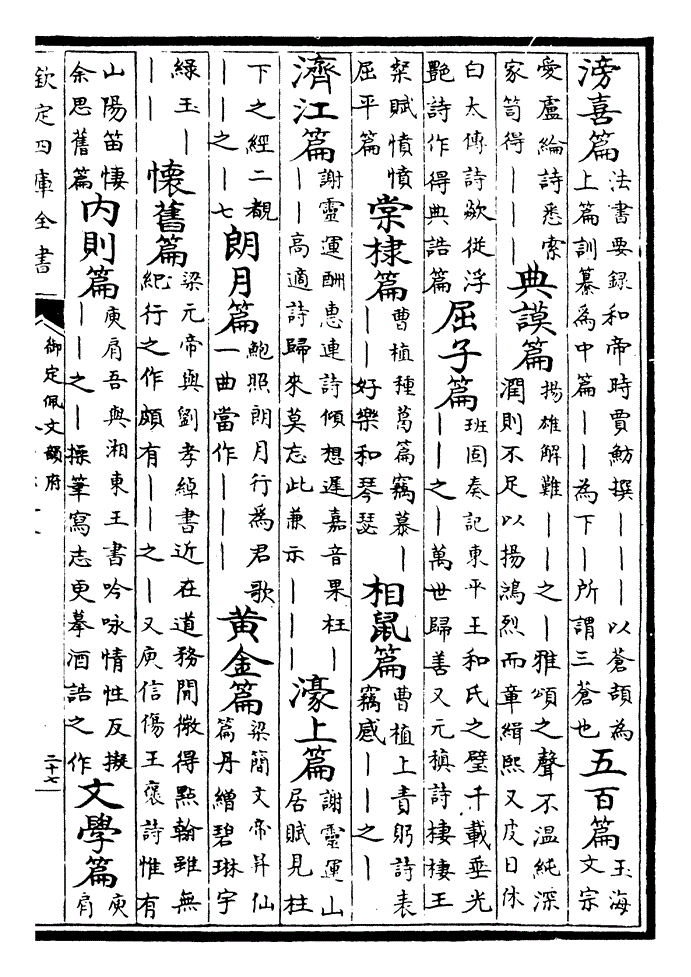 滂喜篇法書要録和帝時賈魴撰｜｜｜以蒼頡為上篇訓纂為中篇｜｜為下｜所謂三蒼也五百篇玉海文宗
愛盧綸詩悉索家笥得｜｜｜典謨篇揚雄解難｜｜之｜雅頌之聲不温純深潤則不足以揚鴻烈而章緝熙又皮日休
白太傅詩欻從浮艶詩作得典誥篇屈子篇班固奏記東平王和氏之璧千載垂光｜｜之｜萬世歸善又元稹詩棲棲王
粲賦憤憤屈平篇棠棣篇曹植種葛篇竊慕｜｜｜好樂和琴瑟相鼠篇曹植上責躬詩表竊感｜｜之｜
濟江篇謝靈運酬惠連詩傾想遲嘉音果枉｜｜｜高適詩歸來莫忘此兼示｜｜｜濠上篇謝靈運山居賦見柱
下之經二覩｜｜之｜七朗月篇鮑照朗月行為君歌一曲當作｜｜｜黄金篇梁簡文帝昇仙篇丹繒碧琳宇
緑玉｜｜｜懷舊篇梁元帝與劉孝綽書近在道務閒微得點翰雖無紀行之作頗有｜｜之｜又庾信傷王褒詩惟有
山陽笛悽余思舊篇内則篇庾肩吾與湘東王書吟咏情性反擬｜｜之｜操筆寫志更摹酒誥之作文學篇庾肩
欽定四庫全書
御定佩文韻府
二十七